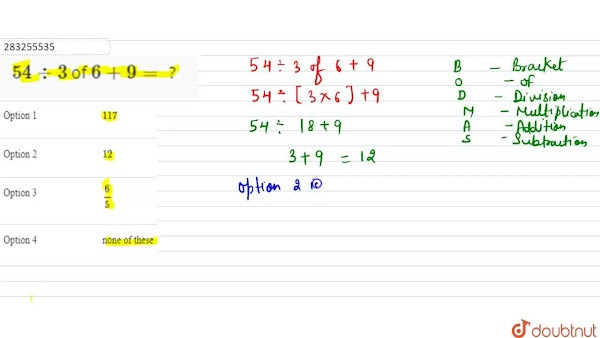 283255535
54 ÷ 3 of 6 + 9 = ?
Option 1 117
Option 2 12
Option 3 6/5
Option 4 none of these
54 ÷ 3 of 6 + 9
54 ÷ [3 × 6] + 9
54 ÷ 18 + 9
3 + 9 = 12
option 2 is
B – Bracket
O – of
D – Division
M – Multiplication
A – Addition
S – Subtraction
doubtnut